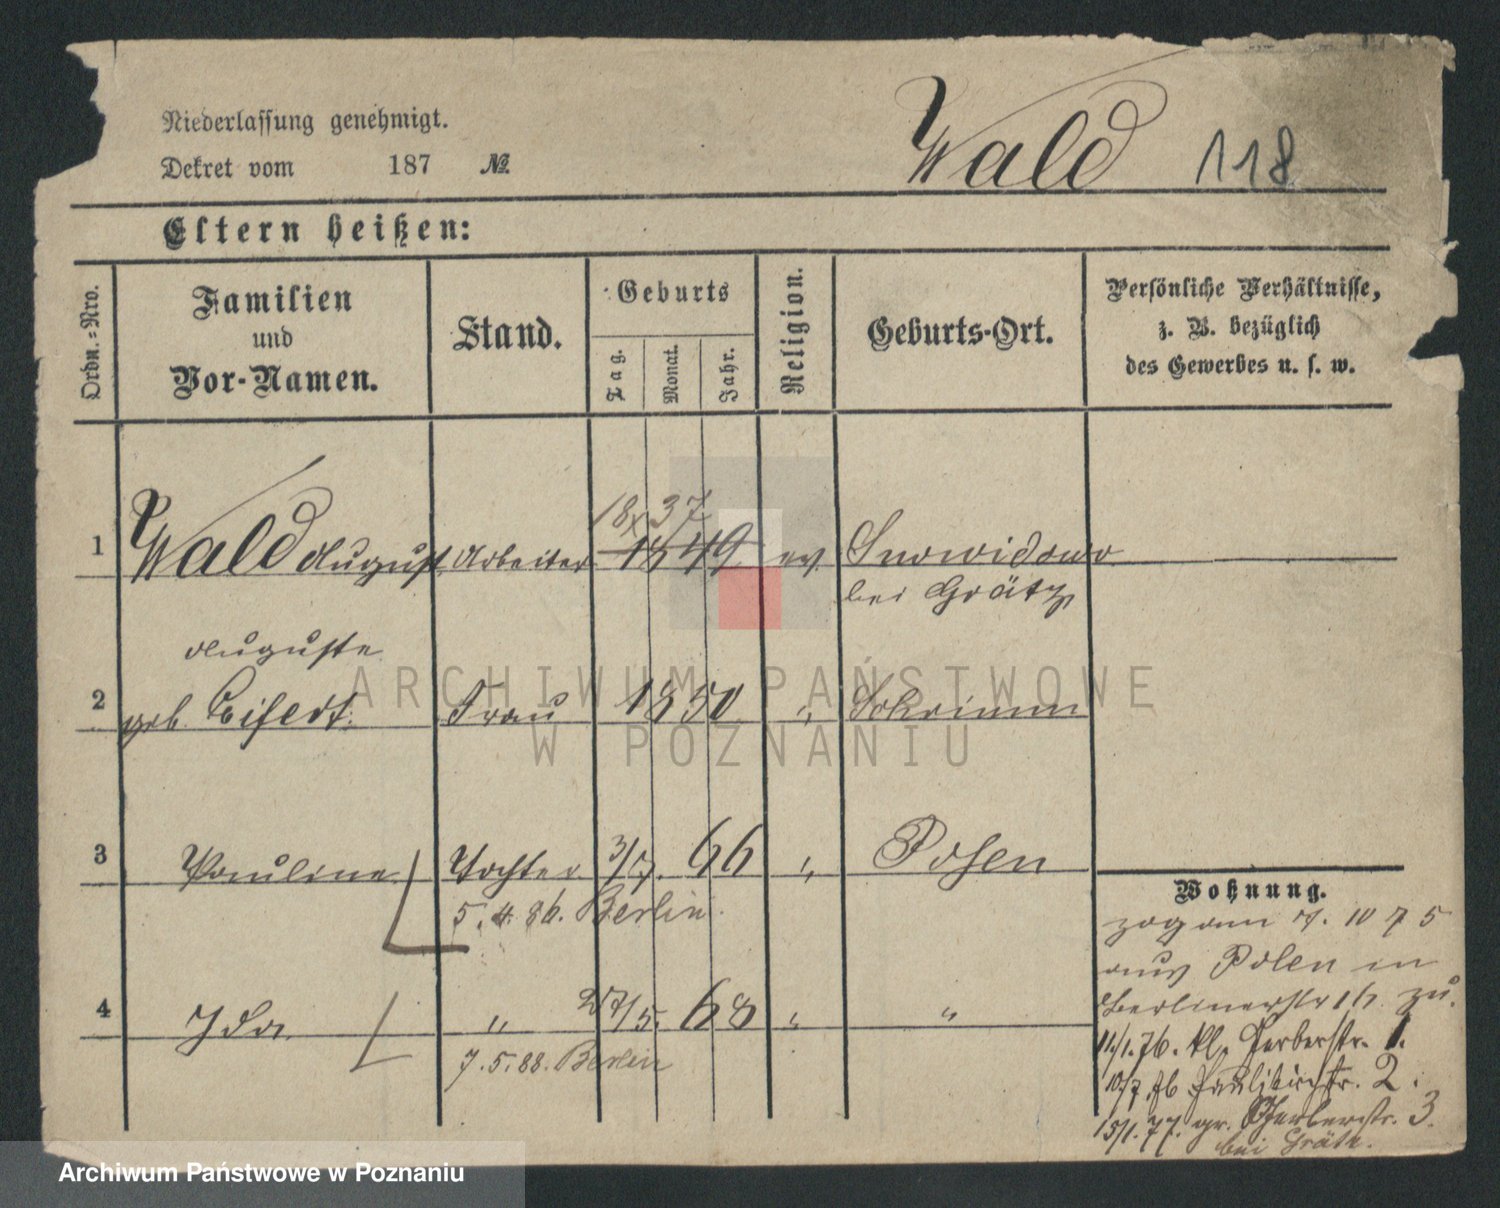 Niederlassung genehmigt.
Dekret vom 187 №
Wald 118
Eltern heißen:
Ordn.-Nro.
Familien
und
Vor-Namen.
Stand.
Geburts
Tag.
Monat.
Jahr.
Religion.
Geburts-Ort.
Persönliche Verhältnisse,
z. B. bezüglich
des Gewerbes u. s. w.
18/x 37
1 Wald August Arbeiter 1849 ev. Snowidowo
bei Grätz
Auguste
2 geb. Seifert Frau 1850 " Schrimm
3 Pauline Tochter 3/7. 66 " Posen
5. 4. 86. Berlin.
4 Ida " 27/5. 68 " "
7. 5. 88. Berlin
Wohnung.
zog am 7. 10 75
aus Polen in
Berlinerstr 16 zu.
11/1. 76. kl. Gerberstr. 1.
10/7 76 Paulikirchstr. 2.
15/1. 77. gr. Gerberstr. 3.
bei Grätz.
ARCHIWUM PAŃSTWOWE
W POZNANIU
Archiwum Państwowe w Poznaniu